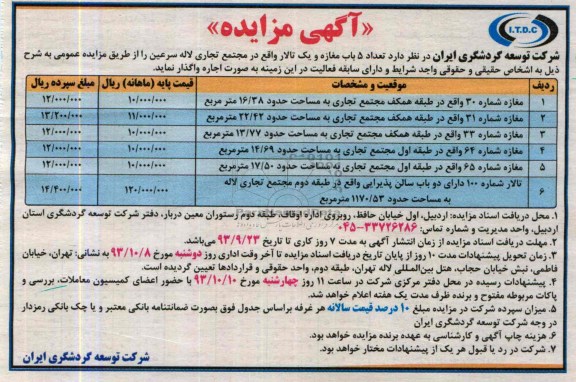 «آگهی مزایده»
I.T.D.C
شرکت توسعه گردشگری ایران در نظر دارد تعداد ۵ باب مغازه و یک تالار واقع در مجتمع تجاری لاله سرعین را از طریق مزایده عمومی به شرح
ذیل به اشخاص حقیقی و حقوقی واجد شرایط و دارای سابقه فعالیت در این زمینه به صورت اجاره واگذار نماید.
ردیف موقعیت و مشخصات قیمت پایه (ماهانه) ریال مبلغ سپرده ریال
۱ مغازه شماره ۳۰ واقع در طبقه همکف مجتمع تجاری به مساحت حدود ۱۶/۳۸ متر مربع ۱۰/۰۰۰/۰۰۰ ۱۲/۰۰۰/۰۰۰
۲ مغازه شماره ۳۱ واقع در طبقه همکف مجتمع تجاری به مساحت حدود ۲۲/۴۲ متر مربع ۱۱/۰۰۰/۰۰۰ ۱۳/۲۰۰/۰۰۰
۳ مغازه شماره ۳۳ واقع در طبقه همکف مجتمع تجاری به مساحت حدود ۱۳/۷۷ مترمربع ۱۰/۰۰۰/۰۰۰ ۱۲/۰۰۰/۰۰۰
۴ مغازه شماره ۶۴ واقع در طبقه اول مجتمع تجاری به مساحت حدود ۱۴/۶۹ مترمربع ۱۰/۰۰۰/۰۰۰ ۱۲/۰۰۰/۰۰۰
۵ مغازه شماره ۶۵ واقع در طبقه اول مجتمع تجاری به مساحت حدود ۱۷/۵۰ مترمربع ۱۰/۰۰۰/۰۰۰ ۱۲/۰۰۰/۰۰۰
۶ تالار شماره ۱۰۰ دارای دو باب سالن پذیرایی واقع در طبقه دوم مجتمع تجاری لاله ۱۲۰/۰۰۰/۰۰۰ ۱۴/۴۰۰/۰۰۰
به مساحت حدود ۱۱۷۰/۵۳ مترمربع
۱. محل دریافت اسناد مزایده: اردبیل، اول خیابان حافظ، روبروی اداره اوقاف، طبقه دوم رستوران معین دربار، دفتر شرکت توسعه گردشگری استان
اردبیل، واحد مدیریت و شماره تماس: ۳۳۷۲۶۲۸۶-۰۴۵
۲. مهلت دریافت اسناد مزایده از زمان انتشار آگهی به مدت ۷ روز کاری تا تاریخ ۹۳/۹/۲۳ می‌باشد.
۳. زمان تحویل پیشنهادات مدت ۱۰ روز از پایان تاریخ دریافت اسناد مزایده تا آخر وقت اداری روز دوشنبه مورخ ۹۳/۱۰/۸ به نشانی: تهران، خیابان
فاطمی، نبش خیابان حجاب، هتل بین‌المللی لاله تهران، طبقه دوم، واحد حقوقی و قراردادها تعیین گردیده است.
۴. پیشنهادات رسیده در محل دفتر مرکزی شرکت در ساعت ۱۱ روز چهارشنبه مورخ ۹۳/۱۰/۱۰ با حضور اعضای کمیسیون معاملات، بررسی و
پاکات مربوطه مفتوح و برنده ظرف مدت یک هفته اعلام خواهد شد.
۵. میزان سپرده شرکت در مزایده مبلغ ۱۰ درصد قیمت سالانه هر غرفه براساس جدول فوق بصورت ضمانتنامه بانکی معتبر و یا چک بانکی رمزدار
در وجه شرکت توسعه گردشگری ایران
۶. هزینه چاپ آگهی و کارشناسی به عهده برنده مزایده خواهد بود.
۷. شرکت در رد یا قبول هر یک از پیشنهادات مختار خواهد بود.
شرکت توسعه گردشگری ایران